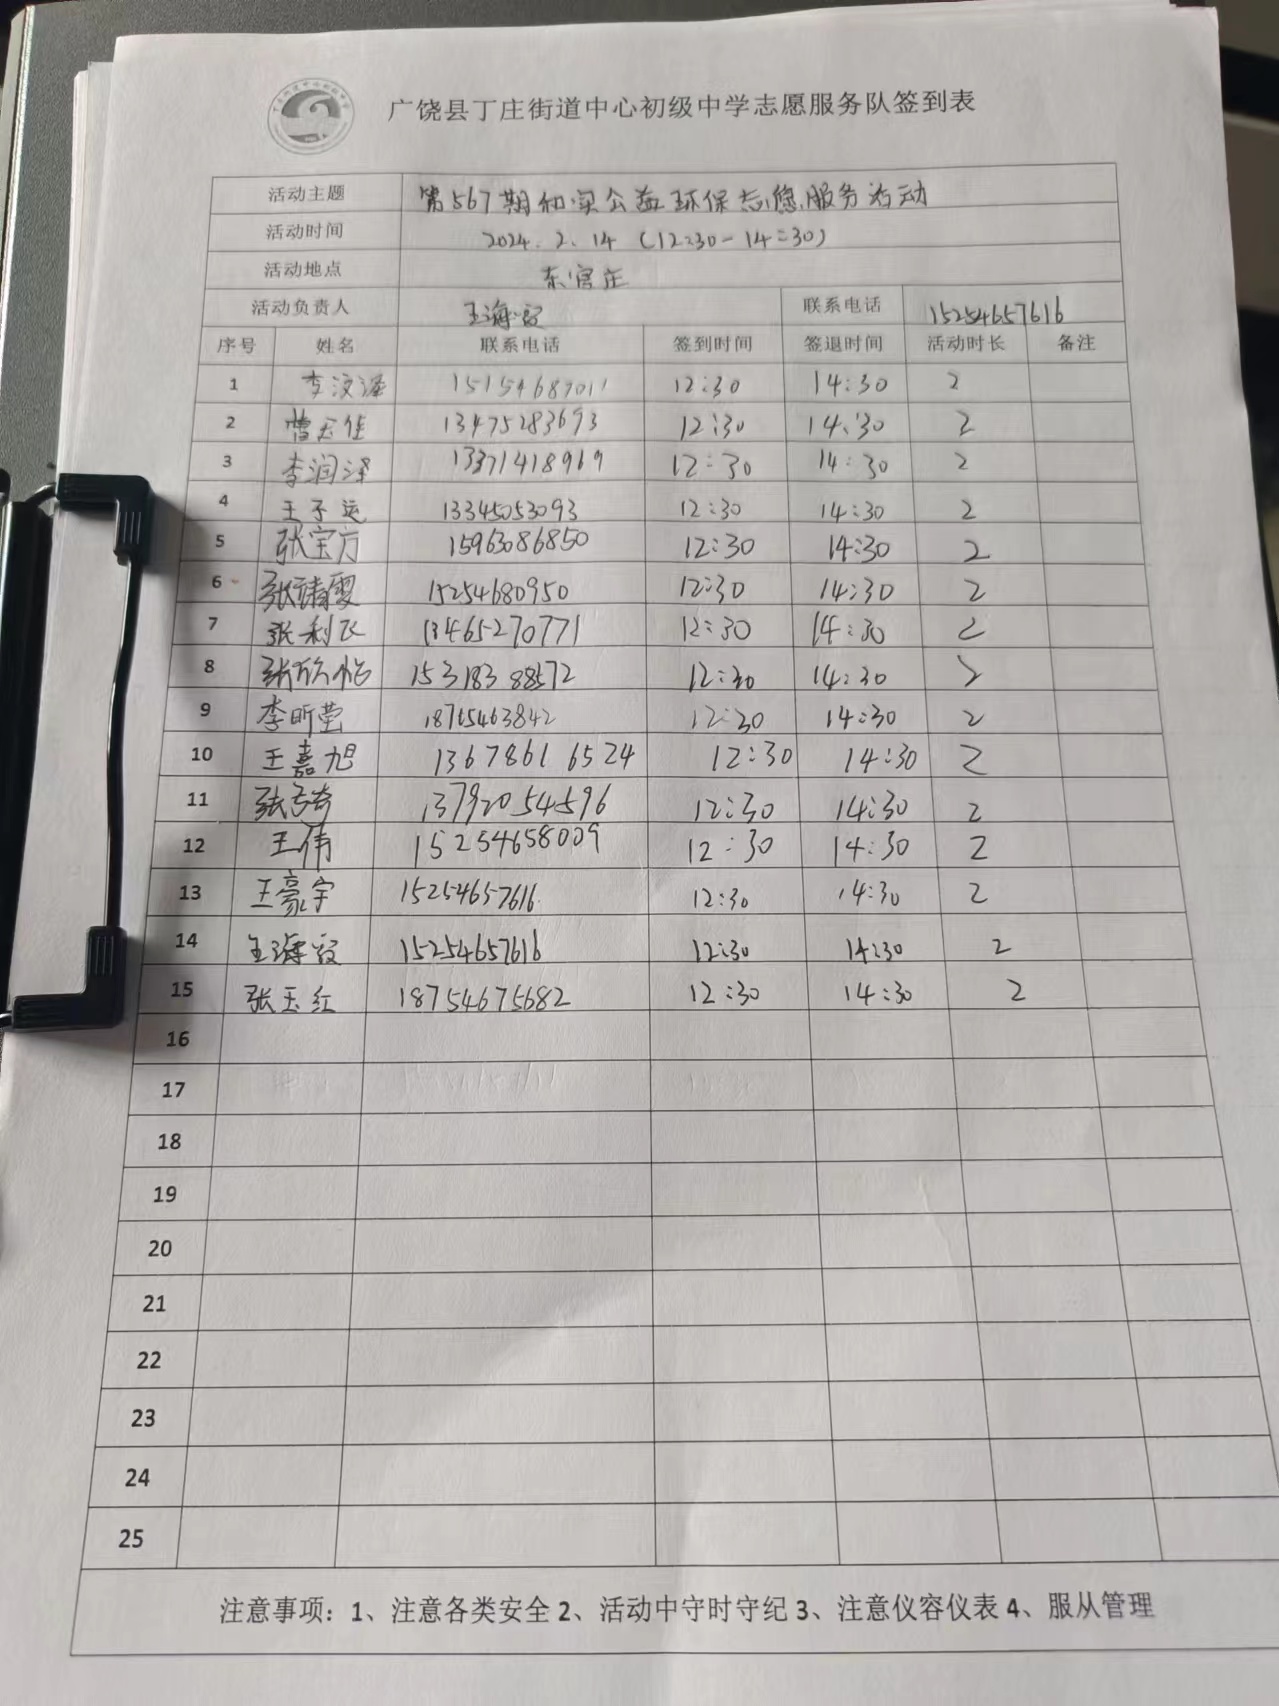 广饶县丁庄街道中心初级中学志愿服务队签到表
活动主题 第567期和实公益环保志愿服务活动
活动时间 2024.2.14 (12:30-14:30)
活动地点 东官庄
活动负责人 王海 联系电话 15254657616
序号 姓名 联系电话 签到时间 签退时间 活动时长 备注
1 李汶泽 15154687011 12:30 14:30 2
2 曹 佳 13475283693 12:30 14:30 2
3 李润泽 13371418969 12:30 14:30 2
4 王子运 13345053093 12:30 14:30 2
5 张宝方 15963086850 12:30 14:30 2
6 张靖雯 15254680950 12:30 14:30 2
7 张利飞 13465270771 12:30 14:30 2
8 张欣怡 15318388572 12:30 14:30 2
9 李昕莹 18765463842 12:30 14:30 2
10 王嘉旭 13678616524 12:30 14:30 2
11 张 奇 13792054596 12:30 14:30 2
12 王伟 15254658009 12:30 14:30 2
13 王豪宇 15254657616 12:30 14:30 2
14 王海 15254657616 12:30 14:30 2
15 张玉红 18754675682 12:30 14:30 2
16
17
18
19
20
21
22
23
24
25
注意事项：1、注意各类安全 2、活动中守时守纪 3、注意仪容仪表 4、服从管理